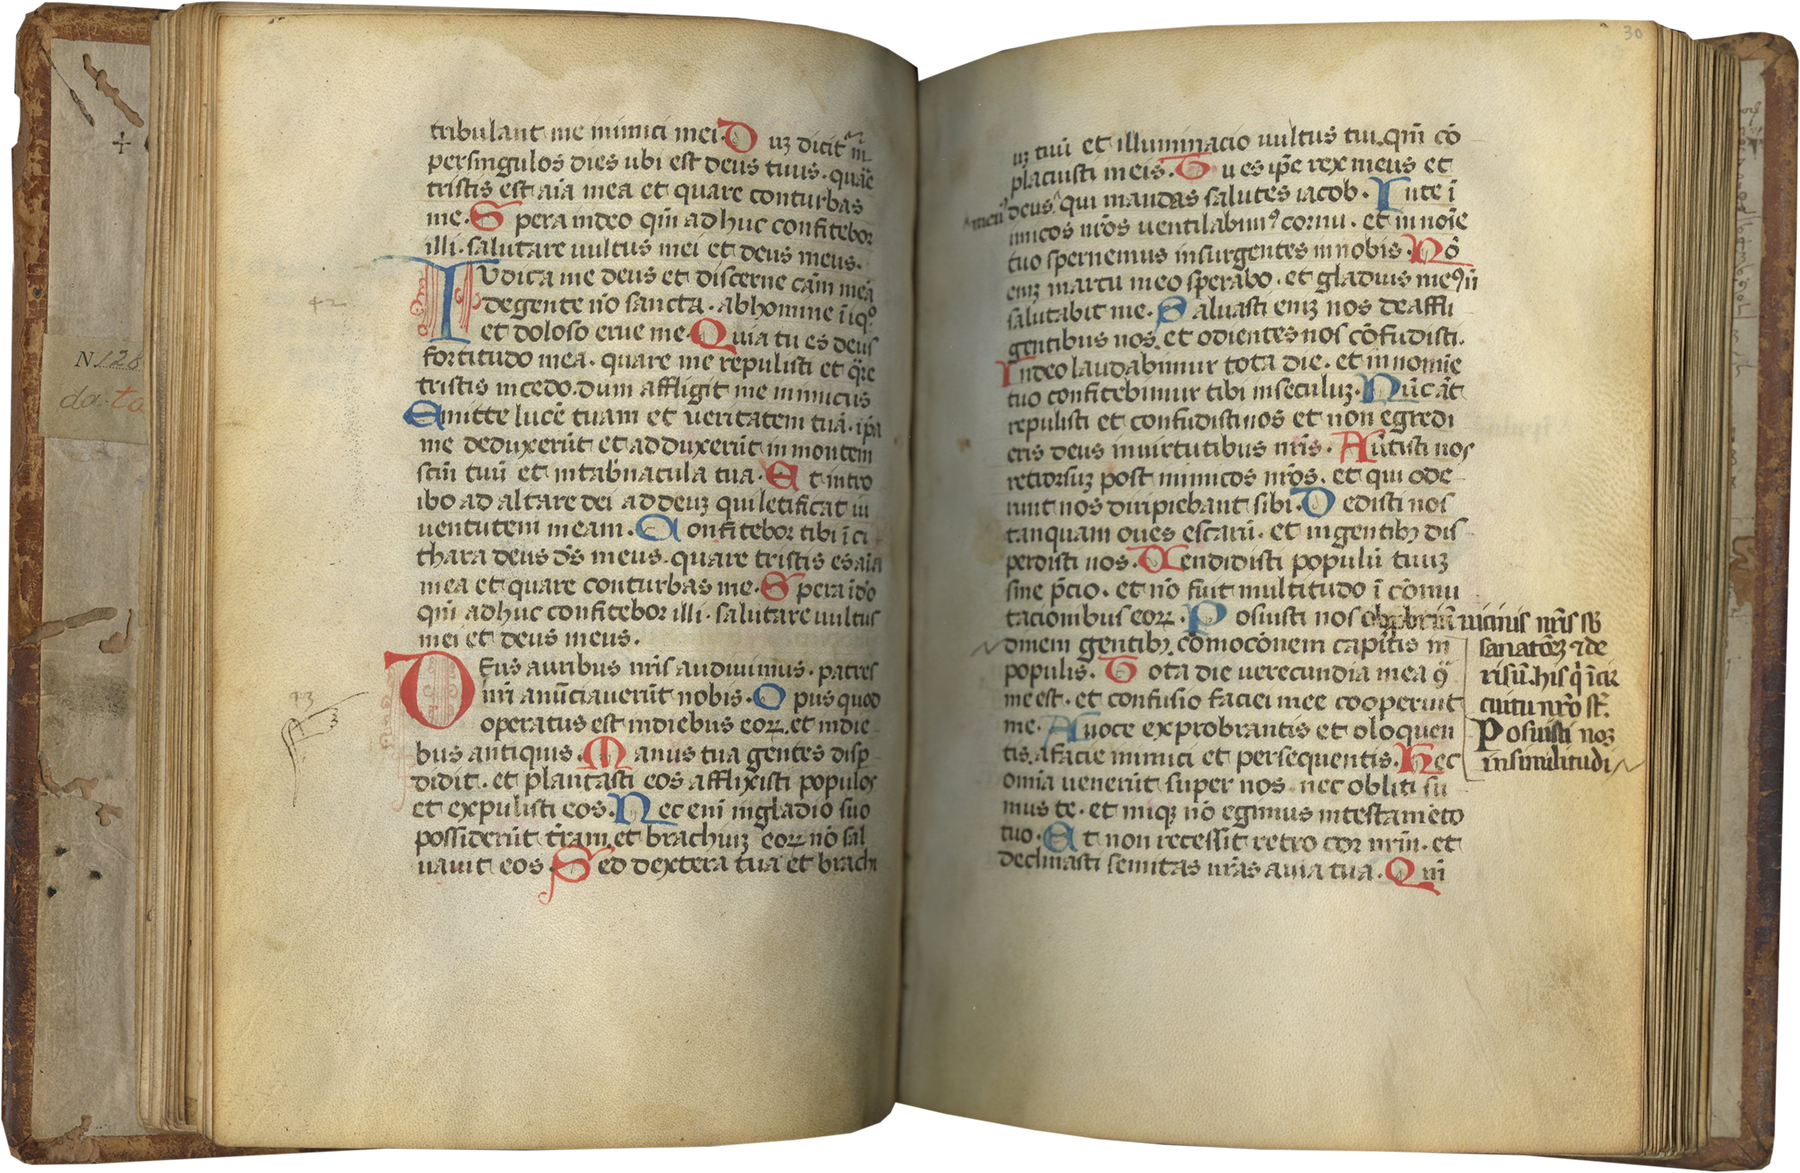 tribulant me inimici mei. Duȝ dicit᷑ m̄
persingulos dies ubi est deus tuus. quar̄e
tristis est aīa mea et quare conturbas
me. Spera indeo qm̄ adhuc confitebor
illi. salutare uultus mei et deus meus.
IUdica me deus et discerne cām meā
42
degente nō sancta. abhomine īiq°
et doloso erue me. Quia tu es deus
N. 128
fortitudo mea. quare me repulisti et q̄re
tristis incedo. dum affligit me inimicus
Emitte lucē tuam et ueritatem tuā. ip̄a
me deduxerūt et adduxerūt in montem
sc̄m tuū et intab̄nacula tua. Et intro
ibo ad altare dei ad deuȝ qui letificat iu
uentutem meam. Confitebor tibi ī ci
thara deus ds̄ meus. quare tristis es aīa
mea et quare conturbas me. Spera ī dō
qm̄ adhuc confitebor illi. salutare uultus
mei et deus meus.
DEus auribus nr̄is audiuimus. patres
nr̄i anūciauerūt nobis. Opus quod
operatus est indiebus eoꝝ. et indie
bus antiquis. Manus tua gentes disp̄
didit. et plantasti eos afflixisti populos
et expulisti eos. Nec eni ingladio suo
possiderūt tr̄am et brachiuȝ eoꝝ nō sal
uauit eos. Sed dextera tua et brachi
30
uȝ tuū et illuminacio uultus tui. qm̄ cō
placuisti meis. Tu es ip̄e rex meus et
deus^ qui mandas salutes iacob. Inte ī
^meus
imicos nr̄os uentilabimꝰ cornu. et in noīe
tuo spernemus insurgentes in nobis. Nō
eniȝ inarcu meo sperabo. et gladius meꝰ nō
saluabit me. Saluasti eniȝ nos de affli
gentibus nos. et odientes nos cōfudisti.
Indeo laudabimur tota die. et in nomīe
tuo confitebimur tibi inseculuȝ. Nūc āt
repulisti et confudisti nos et non egredi
eris deus inuirtutibus nr̄is. Aūtisti nos
retrorsuȝ post inimicos nr̄os. et qui ode
runt nos diripiebant sibi. Dedisti nos
tanquam oues escarū. et ingentibȝ dis
perdisti nos. Uendidisti populū tuuȝ
sine p̄cio. et nō fuit multitudo ī cōmu
tacionibus eoꝝ. Posuisti nos obprobriū uicinis nr̄is sb̄
sanatōeȝ ⁊ de
risū. his q̄ ī cir
cuitu nr̄o st̄.
Posuisti nos
insimilitudi
dinem gentibȝ cōmocōnem capitis in
populis. Tota die uerecundia mea ꝯ
me est. et confusio faciei mee cooperuit
me. Auoce exprobrantis et oloquen
tis. a facie inimici et persequentis. Hec
omīa uenerūt super nos nec obliti su
mus te. et iniqȝ nō egimus intestamēto
tuo. Et non recessit retro cor nr̄m. et
declinasti semitas nr̄as auia tua. Qm̄